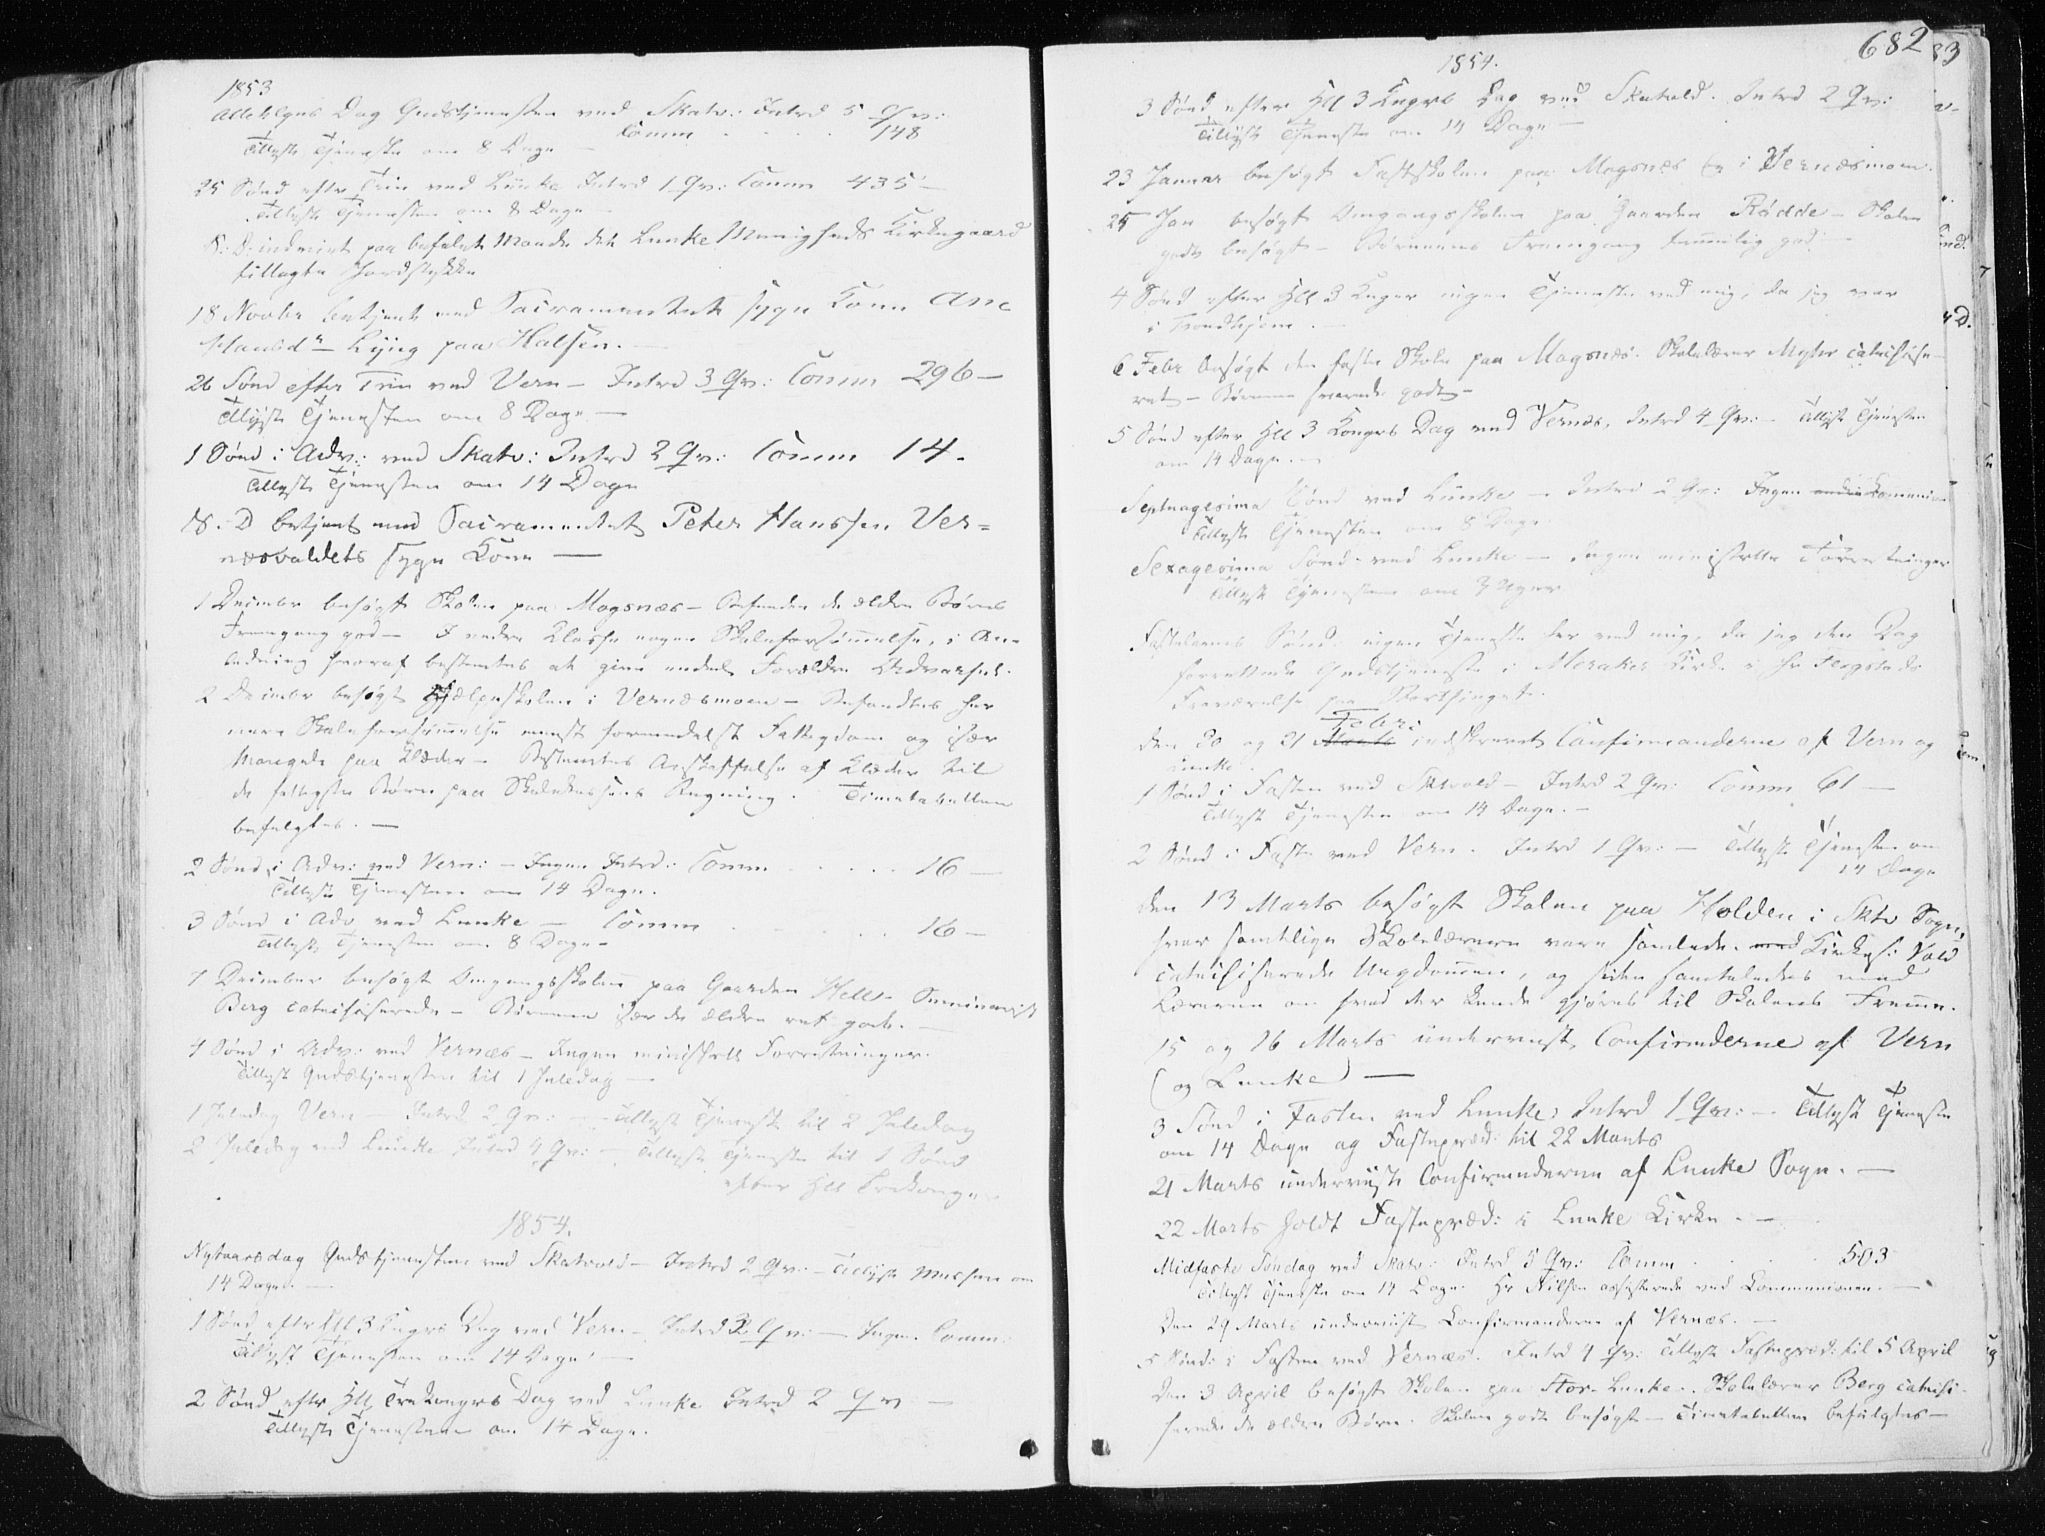 1853
Allehlgns Dag Gudstjenesten ved Skatv: Introd 5 Qv:
Comm 148
Tillyst Tjeneste om 8 Dage —
25 Sønd eftr Trin ved Lunke Introd 1 Qv: Comm 435 —
Tillyst Tjenesten om 8 Dage —
S: D: indviet paa befalet Maade det Lunke Menigheds Kirkegaard
tillagte Jordstykke
18 Novbr betjent med Sacramentet syge Kone Ane
Lÿng paa Halsen. —
26 Sønd efter Trin ved Vern — Introd 3 Qv: Comm 296 —
Tillyst Tjenesten om 8 Dage —
1 Sønd i Adv: ved Skatv: Introd 2 Qv: Comm 14.
Tillyst Tjenesten om 14 Dage
S. D betjent med Sacramentet Peter Hanssen Ver-
næsvaldets syge Kone —
1 December besøgt Skolen paa Mogsnæs — Befandtes de ældre Børns
Fremgang god — I nedre Klasse nogen Skoleforsømmelse, i An-
ledning hvoraf bestemtes at give endel Forældre Advarsel.
2 December besøgt Hjælpeskolen i Vernæsmoen — Befandtes her
mere Skoleforsømmelse meest formedelst Fattigdom og især
Mangel paa Klæder — Bestemtes Anskaffelse af Klæder til
de fattigste Børn paa Skolekassens Regning. Timetabellen
befulgtes. —
2 Sønd i Adv: ved Vern: — Ingen Introd: Comm 16 —
Tillyst Tjenesten om 14 Dage.
3 Sønd i Adv ved Lunke — Comm 16 —
Tillyst Tjenesten om 8 Dage —
7 December besøgt Omgangsskolen paa Gaarden Hell — Seminarist
Berg catechiserede — Børnene især de ældre ret gode. —
4 Sønd i Adv: ved Vernæs — Ingen ministrielle Forretninger.
Tillyst Gudstjenesten til 1 Juledag —
1 Juledag Vern — Introd 2 Qv: — Tillyst Tjeneste til 2 Juledag
2 Juledag ved Lunke Introd 4 Qv: — Tillyst Tjeneste til 1 Sønd
efter Hll Trekonger
1854.
Nytaarsdag Gudstjenesten ved Skatvold — Introd 2 Qv: — Tillyst Messen om
14 Dage. —
1 Sønd eftr Hll 3 Kngrs Dag ved Vern — Introd 2 Qv: — Ingen Comm:
Tillyst Tjenesten om 14 Dage. —
2 Sønd eftr Hll Trekongrs Dag ved Lunke Introd 2 Qv —
Tillyst Tjenesten om 14 Dage.
682
83
1854.
3 Sønd efter Hll 3 Kngrs Dag ved Skatvold. Introd 2 Qv:
Tillyst Tjeneste om 14 Dage —
23 Januar besøgt Fastskolen paa Mogsnæs og i Vernæsmoen.
25 Jan besøgt Omgangsskolen paa Gaarden Rødde — Skolen
godt besøgt — Børnenes Fremgang temmelig god —
4 Sønd efter Hll 3 Konger ingen Tjeneste ved mig, da jeg var
i Trondhjem. —
6 Febr besøgt den faste Skole paa Mogsnæs. Skolelærer Myhr catechise-
rede — Børnene svarede godt —
5 Sønd efter Hll 3 Kongrs Dag ved Vernæs. Introd 4 Qv: — Tillyst Tjenesten
om 14 Dage. —
Septuagesima Sønd ved Lunke — Introd 2 Qv: Ingen Communion
Tillyst Tjenesten om 8 Dage.
Sexagesima Sønd. ved Lunke — Ingen ministrielle Forretninger
Tillyst Tjenesten om 3 Uger
Fastelavns Sønd: ingen Tjeneste her ved mig, da jeg den Dag
forrettede Gudstjenesten i Meraker Kirke i Hr Fergstads
Fraværelse paa Storthinget.
Febr:
den 20 og 21 Marts indskrevet Confirmanderne af Vern og
Lunke.
1 Sønd i Fasten ved Sktvold — Introd 2 Qv: Comm 61 —
Tillyst Tjenesten om 14 Dage. —
2 Sønd i Faste ved Vern. Introd 1 Qv: — Tillyst Tjenesten om
14 Dage
den 13 Marts besøgt Skolen paa Holden i Sktv Sogn,
hvor samtlige Skolelærere vare samlede. med Kirkes: Vold
catechiserede Ungdommen, og siden samtaledes med
Lærerne om hvad der kunde gjøres til Skolens Fremme.
15 og 16 Marts underviist Confirmderne af Vern
(og Lunke) —
3 Sønd i Fasten ved Lunke, Introd 1 Qv: — Tillyst Tjenesten
om 14 Dage og Fastepræd: til 22 Marts
21 Marts underviist Confirmanderne af Lunke Sogn. —
22 Marts holdt Fastepræd: i Lunke Kirke. —
Midfaste Søndag ved Skatv: Introd 5 Qv: Comm 503
Tillyst Tjeneste om 14 Dage. Hr Nilsen assisterede ved Communionen. —
Den 29 Marts underviist Confirmanderne af Vernæs. —
5 Sønd: i Fasten ved Vernæs. Introd 4 Qv: Tillyst Fastepræd: til 5 April
Den 3 April besøgt Skolen paa Stor-Lunke. Skolelærer Berg catechi-
serede de ældre Børn. Skolen godt besøgt — Timetabellen befulgtes —